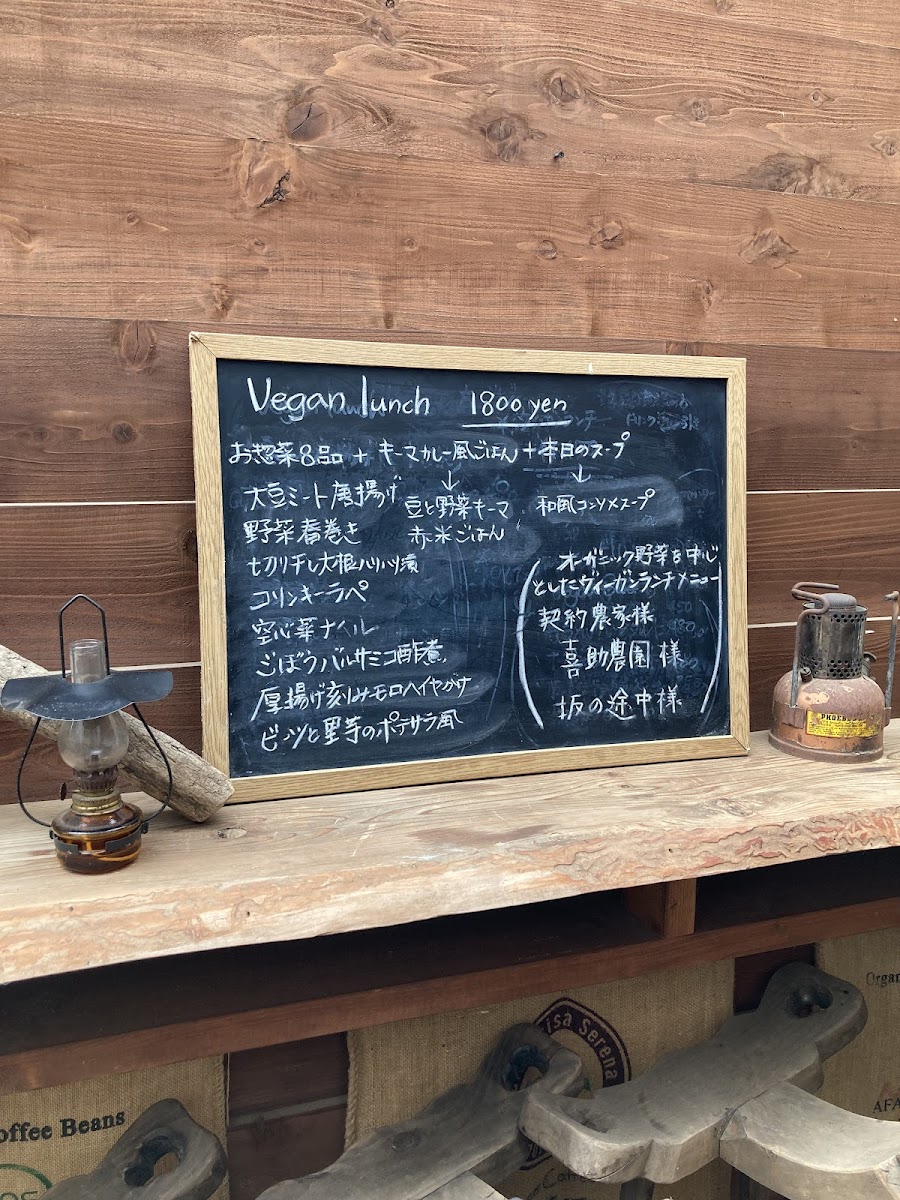 Vegan lunch 1800 yen
お惣菜8品 + キーマカレー風ごはん + 本日のスープ
大豆ミート唐揚げ
野菜春巻き
切り干し大根ハリハリ漬
コリンキーラペ
空心菜ナムル
ごぼうバルサミコ酢煮
厚揚げ刻みモロヘイヤがけ
ビーツと里芋のポテサラ風
↓
豆と野菜キーマ
赤米ごはん
↓
和風コンソメスープ
オーガニック野菜を中心
としたヴィーガンランチメニュー
契約農家様
喜助農園様
坂の途中様
PHOEBUS
isa Serena
offee Beans
Organ
AFA